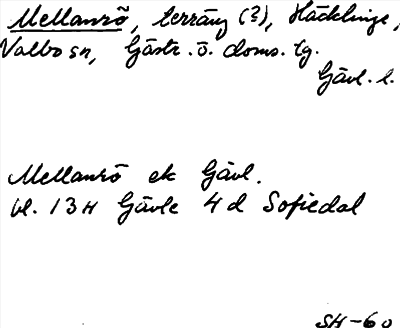 Mellanrö, terräng (?), Häcklinge,
Valbo sn, Gästr. ö. doms. tg.
Gävl. l.
Mellanrö ek Gävl.
bl. 13H Gävle 4d Sofiedal
SH-60